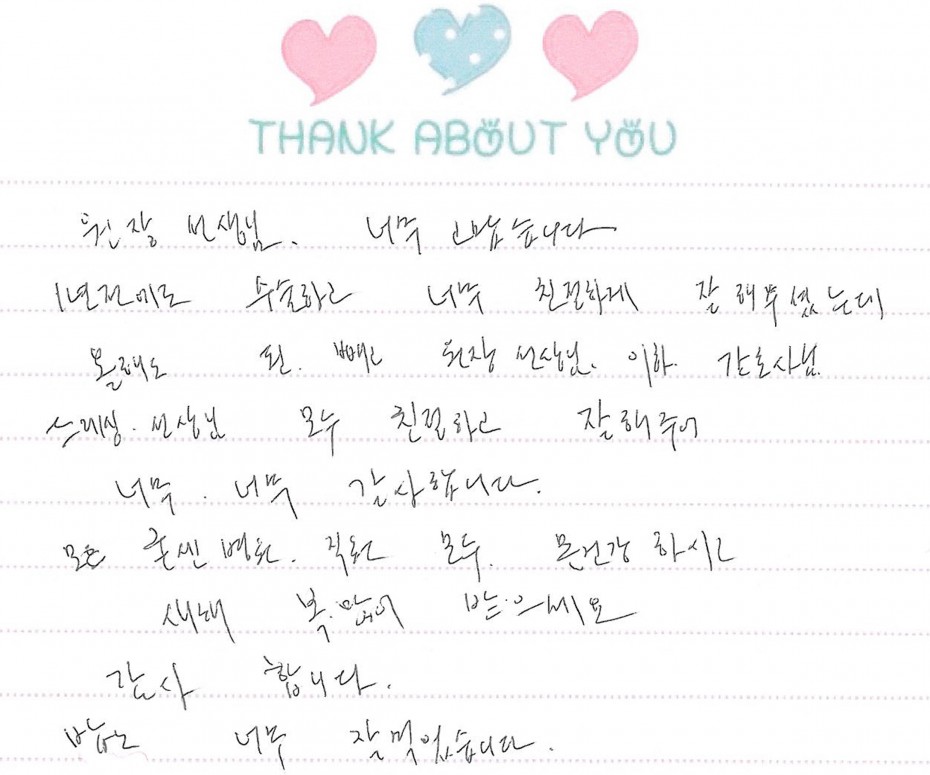 THANK ABOUT YOU
원장 선생님. 너무 고맙습니다
1년전에도 수술하고 너무 친절하게 잘 해주셨는데
올해도 핀. 빼고 원장 선생님. 이하. 간호사님.
선생님 모두 친절하고 잘해주어
너무. 너무 감사합니다.
모든 굿센 병원. 직원 모두. 몸건강 하시고
새해 복.많이 받으세요
감사 합니다.
밥도 너무 잘먹었습니다.